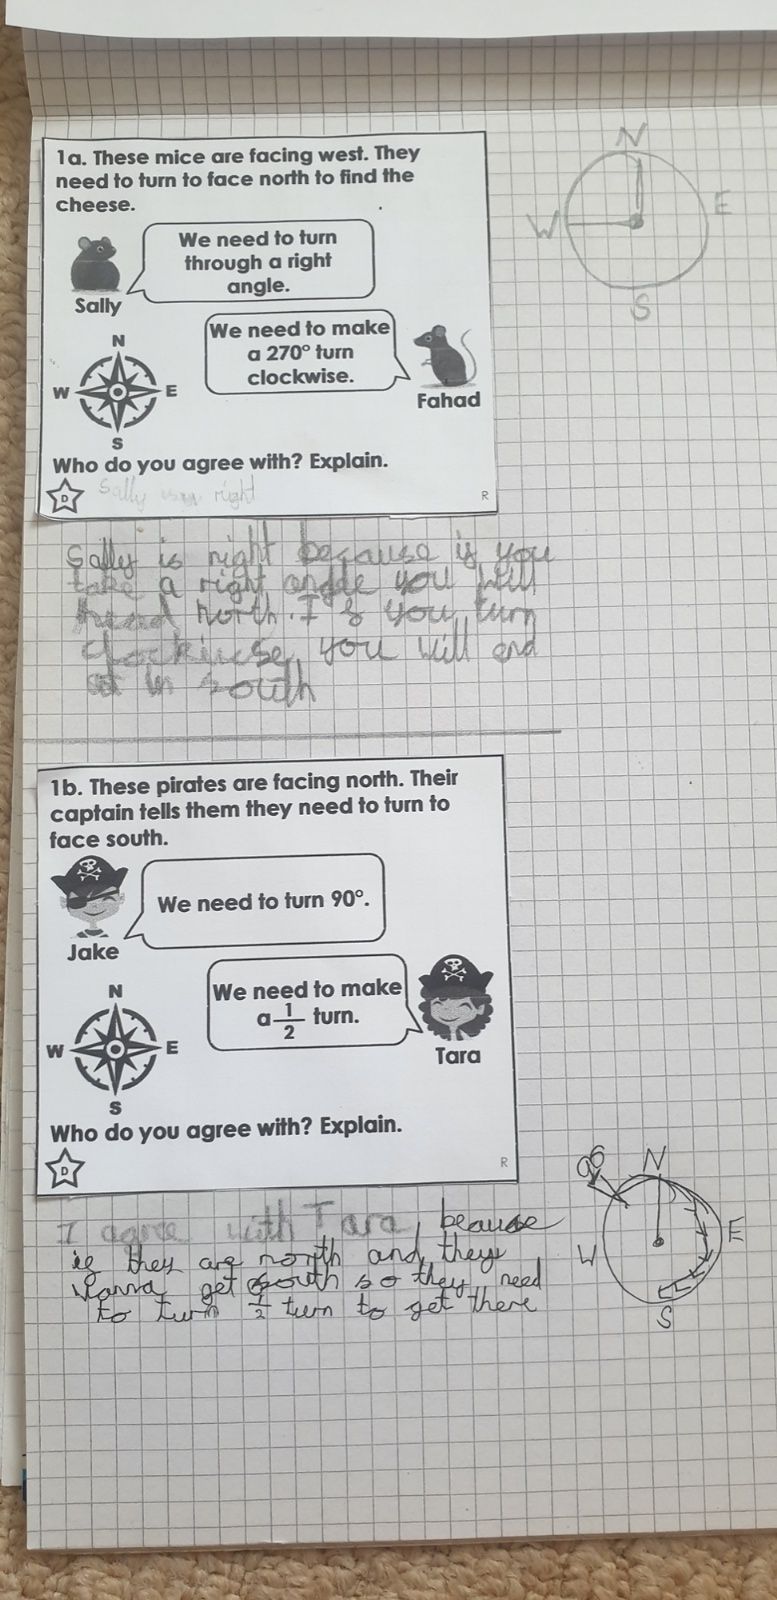 1a. These mice are facing west. They
need to turn to face north to find the
cheese.
We need to turn
through a right
angle.
Sally
We need to make
a 270° turn
clockwise.
Fahad
N
W
E
S
Who do you agree with? Explain.
D
Sally is right
R
N
W
E
S
Sally is right because if you
take a right angle you will
head north. If you turn
clockwise, you will end
in south
1b. These pirates are facing north. Their
captain tells them they need to turn to
face south.
We need to turn 90°.
Jake
We need to make
a 1/2 turn.
Tara
N
W
E
S
Who do you agree with? Explain.
D
R
I agree with Tara, beause
they are north and they
wanna get south so they need
to turn 1/2 turn to get there
N
W
E
S